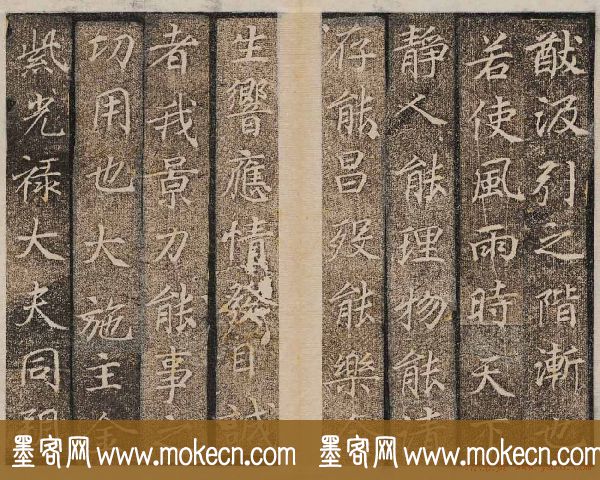 猷汲引之階漸也
若使風雨時天下
静人能理物能清
存能昌殁能樂
生響應情發自誠
者我景力能事之
功用也大施主金
紫光禄大夫同朔
墨客网 www.mokecn.com 墨客网 www.mokecn.com